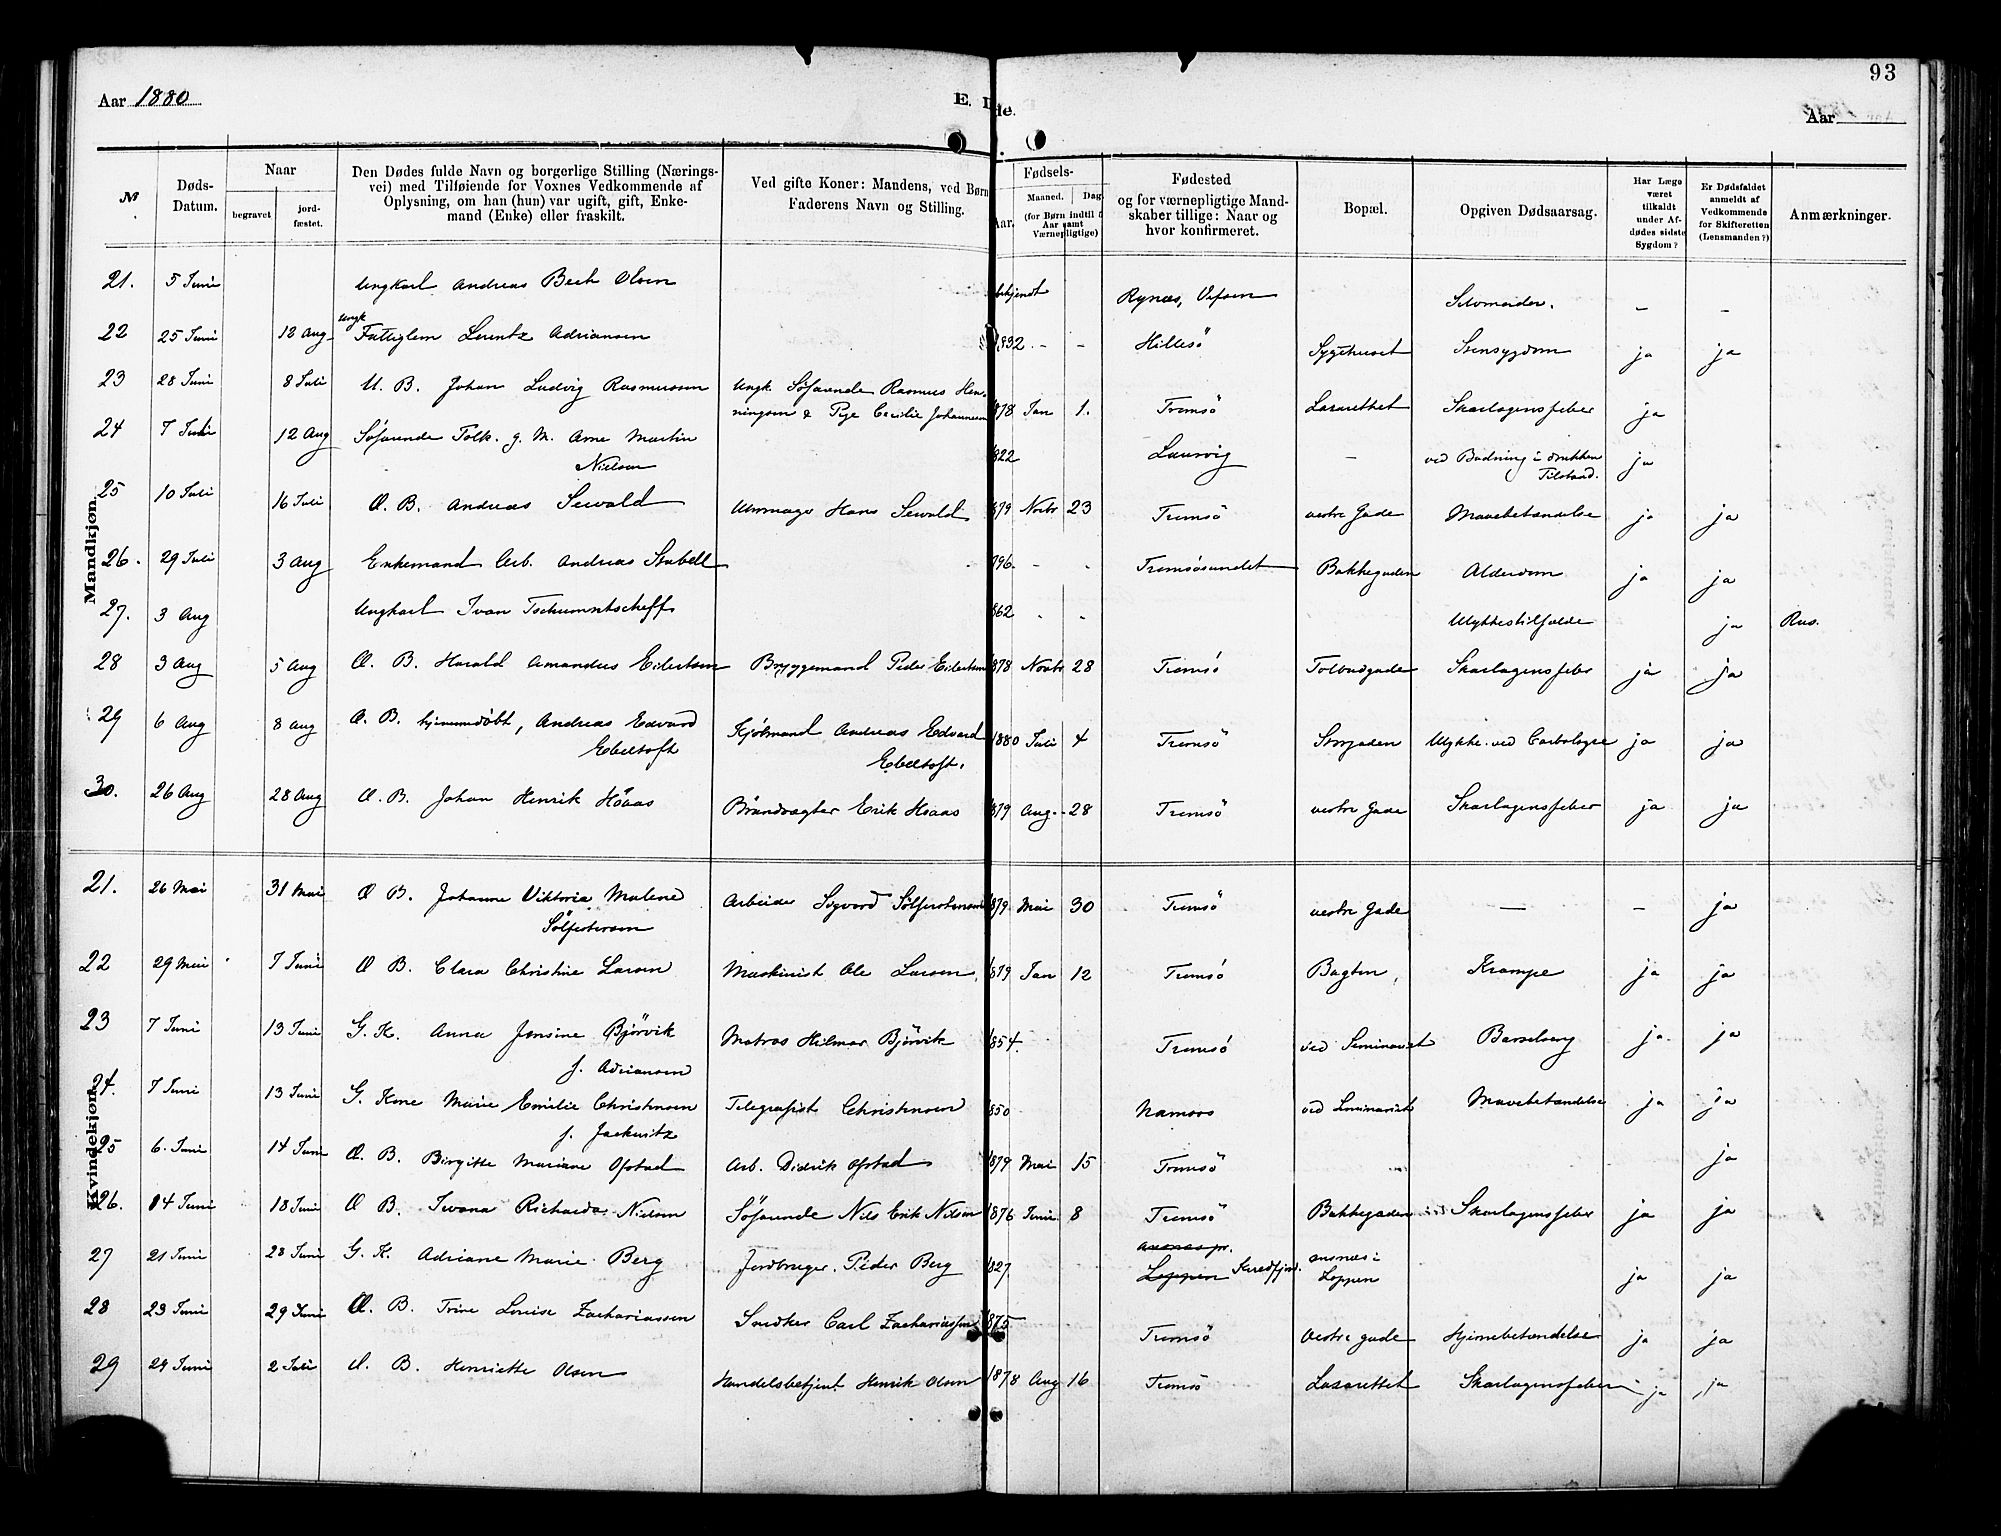 93
Aar 1880
E. D
de.
Aar
№
Døds-Datum.
Naar
begravet
jordfæstet.
Den Dødes fulde Navn og borgerlige Stilling (Næringsvei) med Tilføiende for Voxnes Vedkommende af Oplysning, om han (hun) var ugift, gift, Enkemand (Enke) eller fraskilt.
Ved gifte Koner: Mandens, ved Børn Faderens Navn og Stilling.
Fødsels-
Aar.
Maaned.
Dag.
(for Børn indtil Aar samt Værnepligtige)
Fødested og for værnepligtige Mandskaber tillige: Naar og hvor konfirmeret.
Bopæl.
Opgiven Dødsaarsag.
Har Læge været tilkaldt under Afdødes sidste Sygdom?
Er Dødsfaldet anmeldt af Vedkommende for Skifteretten (Lensmanden?)
Anmærkninger.
Mandkjøn.
21. 5 Juni Ungkarl Andreas Beck Olsen bekjendt Rynæs, Vefsen Selvmorder. - -
22 25 Juni 12 Aug Ungk Fattiglem Lorentz Adriansen 1832 - - Hillesö Sygehuset Stensygdom ja ja
23 28 Juni 8 Juli U. B. Johan Ludvig Rasmussen Ungk Söfarende Rasmus Henningsen & Pige Cecilie Johannesen 878 Jan 1. Tromsö Lazarettet Skarlagensfeber ja
24 7 Juli 12 Aug Söfarende Folk. g. M. Arne Martin Nielsen 822 Laurvig - ved Badning i drukken Tilstand. ja
25 10 Juli 16 Juli Æ. B. Andreas Sewald Uhrmager Hans Sewald 879 Novbr 23 Tromsö vestre Gade Mavebetændelse ja ja
26. 29 Juli 3 Aug Enkemand Arb. Andreas Stabell 796 - - Tromsösundet Bakkegaden Alderdom ja ja
27. 3 Aug Ungkarl Ivan Tschumntscheff 862 - - Ulykkestilfælde ja Rus.
28 3 Aug 5 Aug Æ. B. Harald Amandus Eilertsen Bryggemand Peder Eilertsen 878 Novbr 28 Tromsö Tolbodgade Skarlagensfeber ja ja
29 6 Aug 8 Aug Æ. B. hjemmedöbt, Andreas Edvard Ebeltoft Kjöbmand Andreas Edvard Ebeltoft. 1880 Juli 4 Tromsö Storgaden Ulykke ved Carbolsyre ja ja
30. 26 Aug 28 Aug Æ. B. Johan Henrik Höaas Brandvagter Erik Hoaas 879 Aug. 28 Tromsö vestre Gade Skarlagensfeber ja ja
Kvindekjøn.
21. 26 Mai 31 Mai Æ B. Johanne Viktoria Malene Sölfestersen Arbeider Sigvard 879 Mai 30 Tromsö vestre Gade - - ja
22 29 Mai 7 Juni Æ B. Clara Christine Larsen Maskinist Ole Larsen 1879 Jan 12 Tromsö Bagten Krampe ja ja
23 7 Juni 13 Juni G. K. Anna Jensine Björvik f. Adriansen Matros Hilmar Björvik 1854. Tromsö ved Seminariet Barselseng ja ja
24. 7 Juni 13 Juni G. Kone Marie Emilie Christensen f. Telegrafist Christensen 850 Namsos ved Seminariet Mavebetændelse ja ja
25 6. Juni 14 Juni Æ. B. Birgitte Mariane Ofstad Arb. Didrik Ofstad 1879 Mai 15 Tromsö ja
26. 14 Juni 18 Juni Æ B. Jevana Richarda Nielsen Söfarende Nils Erik Nilsen 1876 Juni 8 Tromsö Bakkegaden Skarlagensfeber ja ja
27 21 Juni 23 Juni G. K. Adriane Marie Berg Jordbruger Peder Berg 827 Loppen ansnæs i Loppen ja ja
28 23 Juni 29 Juni Æ. B. Trine Louise Zachariassen Snedker Carl Zachariassen 1875 Tromsö Vestre gade Hjernebetændelse ja ja
29 24 Juni 2 Juli Æ. B. Henriette Olsen Handelsbetjent Henrik Olsen 1878 Aug 16 Tromsö Lazarettet Skarlagensfeber ja ja